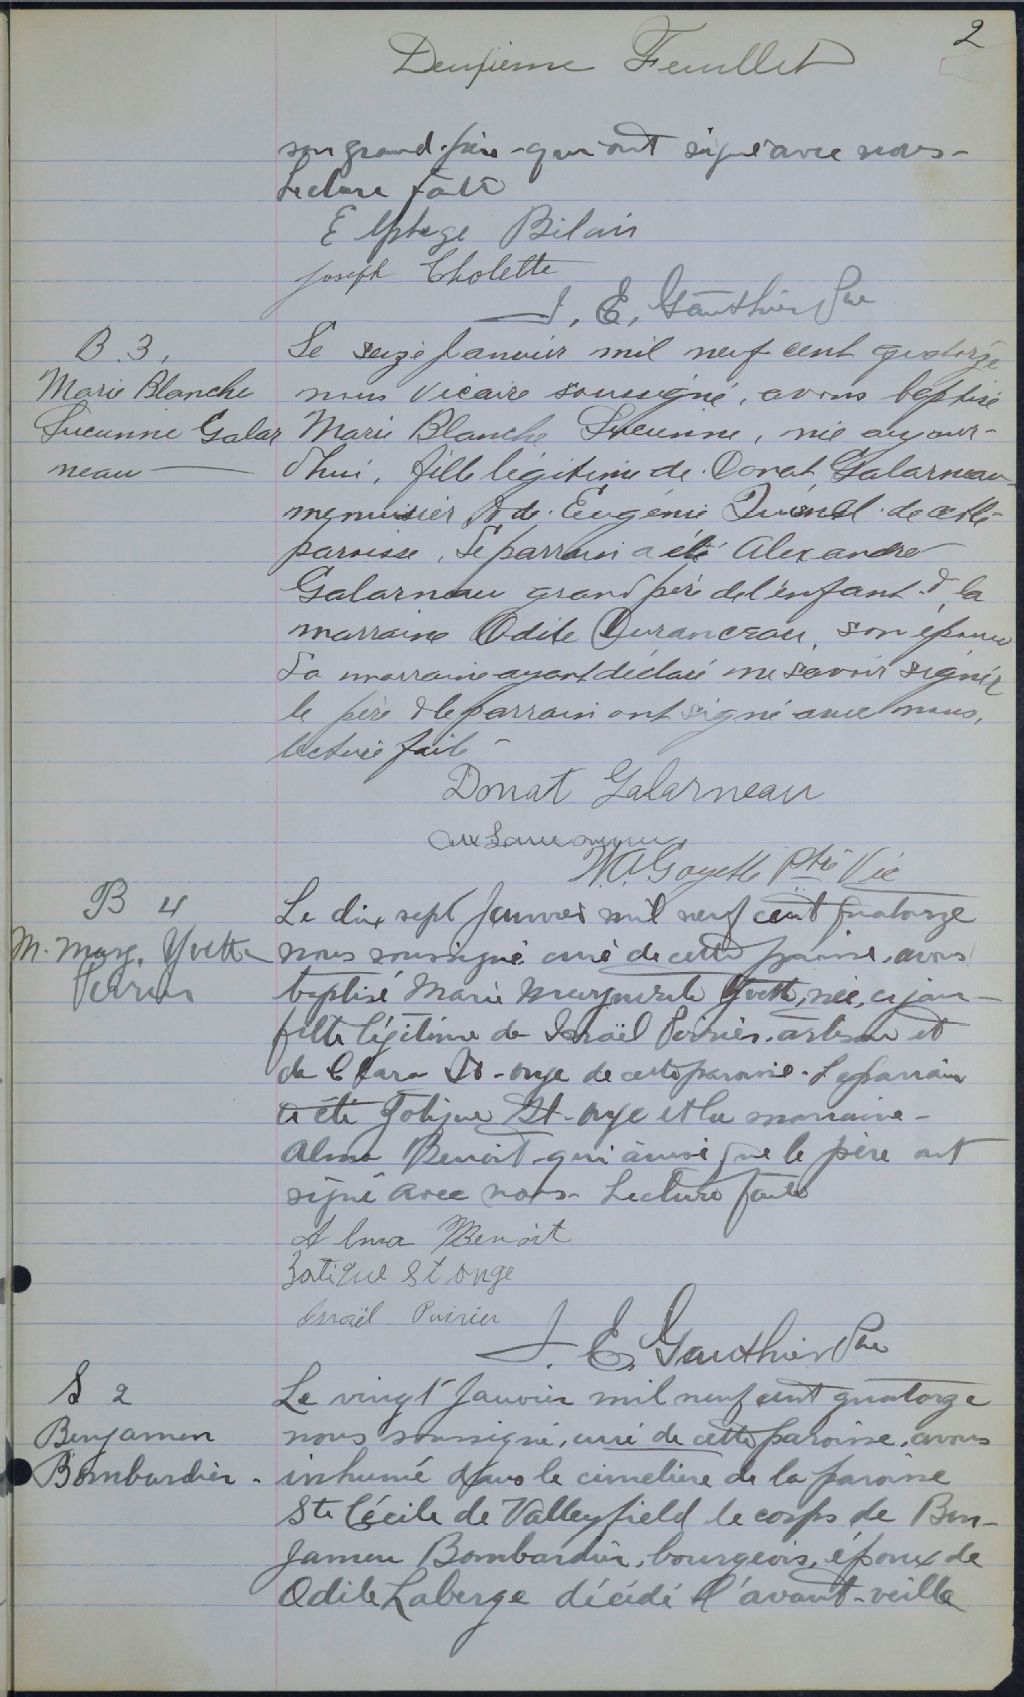 2
Deuxième Feuillet
son grand-père - qui ont signé avec nous -
Lecture faite
Elphège Bilair
Joseph Cholette
J. E. Gauthier Ptre
B. 3.
Marie Blanche
Lucienne Galar
neau
Le seize Janvier mil neuf cent quatorze
nous vicaire soussigné, avons baptisé
Marie Blanche Lucienne, née aujour-
d'hui, fille légitime de Donat Galarneau
menuisier & de Eugénie Quesnel de cette
paroisse. Le parrain a été Alexandre
Galarneau grand père de l'enfant & la
marraine Odile Duranceau, son épouse
La marraine ayant déclaré ne savoir signer
le père & le parrain ont signé avec nous,
lecture faite -
Donat Galarneau
W. A. Goyette Ptre Vic
B 4
M. Marg. Yvette
Poirier
Le dix sept Janvier mil neuf cent quatorze
nous soussigné, curé de cette paroisse, avons
baptisé Marie Marguerite Yvette, née, ce jour -
fille légitime de Israël Poirier, artisan et
de Clara St-onge de cette paroisse. Le parrain
a été Zotique St-onge et la marraine -
Alma Benoit qui ainsi que le père ont
signé avec nous - Lecture faite
Alma Benoit
Zotique St onge
Israël Poirier
J. E. Gauthier Ptre
S 2
Benjamen
Bombardier -
Le vingt Janvier mil neuf cent quatorze
nous soussigné, curé de cette paroisse, avons
inhumé dans le cimetière de la paroisse
Ste Cécile de Valleyfield le corps de Ben-
jamen Bombardier, bourgeois, époux de
Odile Laberge décédé l'avant-veille